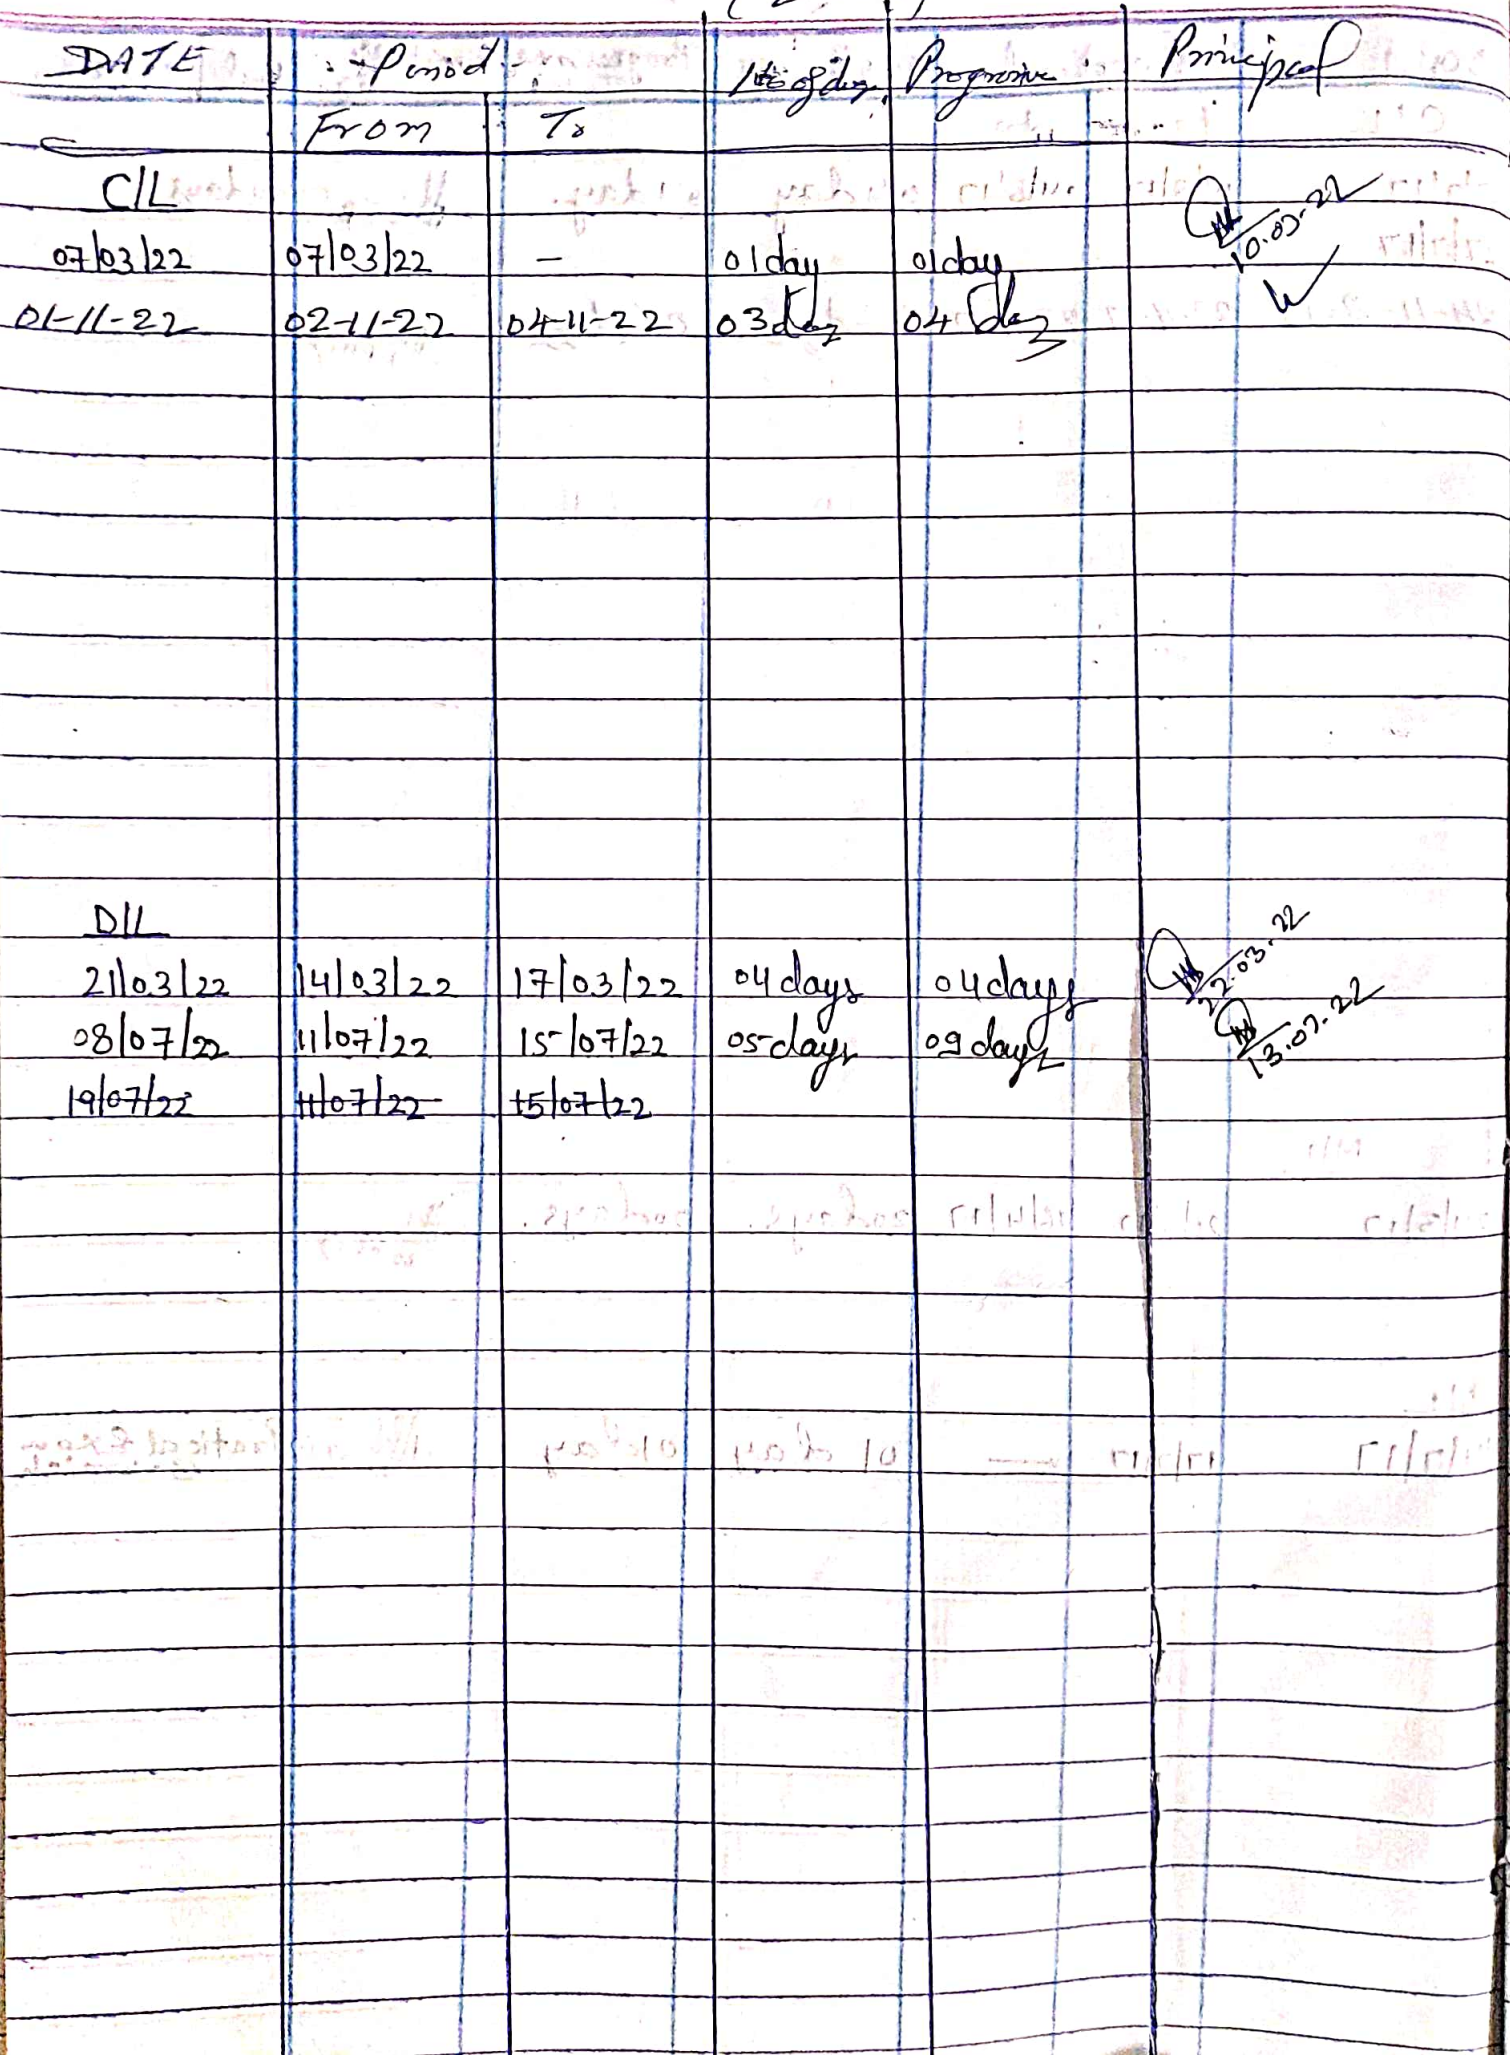 DATE Period No of days Progressive Principal
From To
C/L
07/03/22 07/03/22 - 01day 01day 10.03.22
01-11-22 02-11-22 04-11-22 03day 04 day
D/L
21/03/22 14/03/22 17/03/22 04days 04days 22.03.22
08/07/22 11/07/22 15/07/22 05days 09days 13.07.22
19/07/22 11/07/22 15/07/22